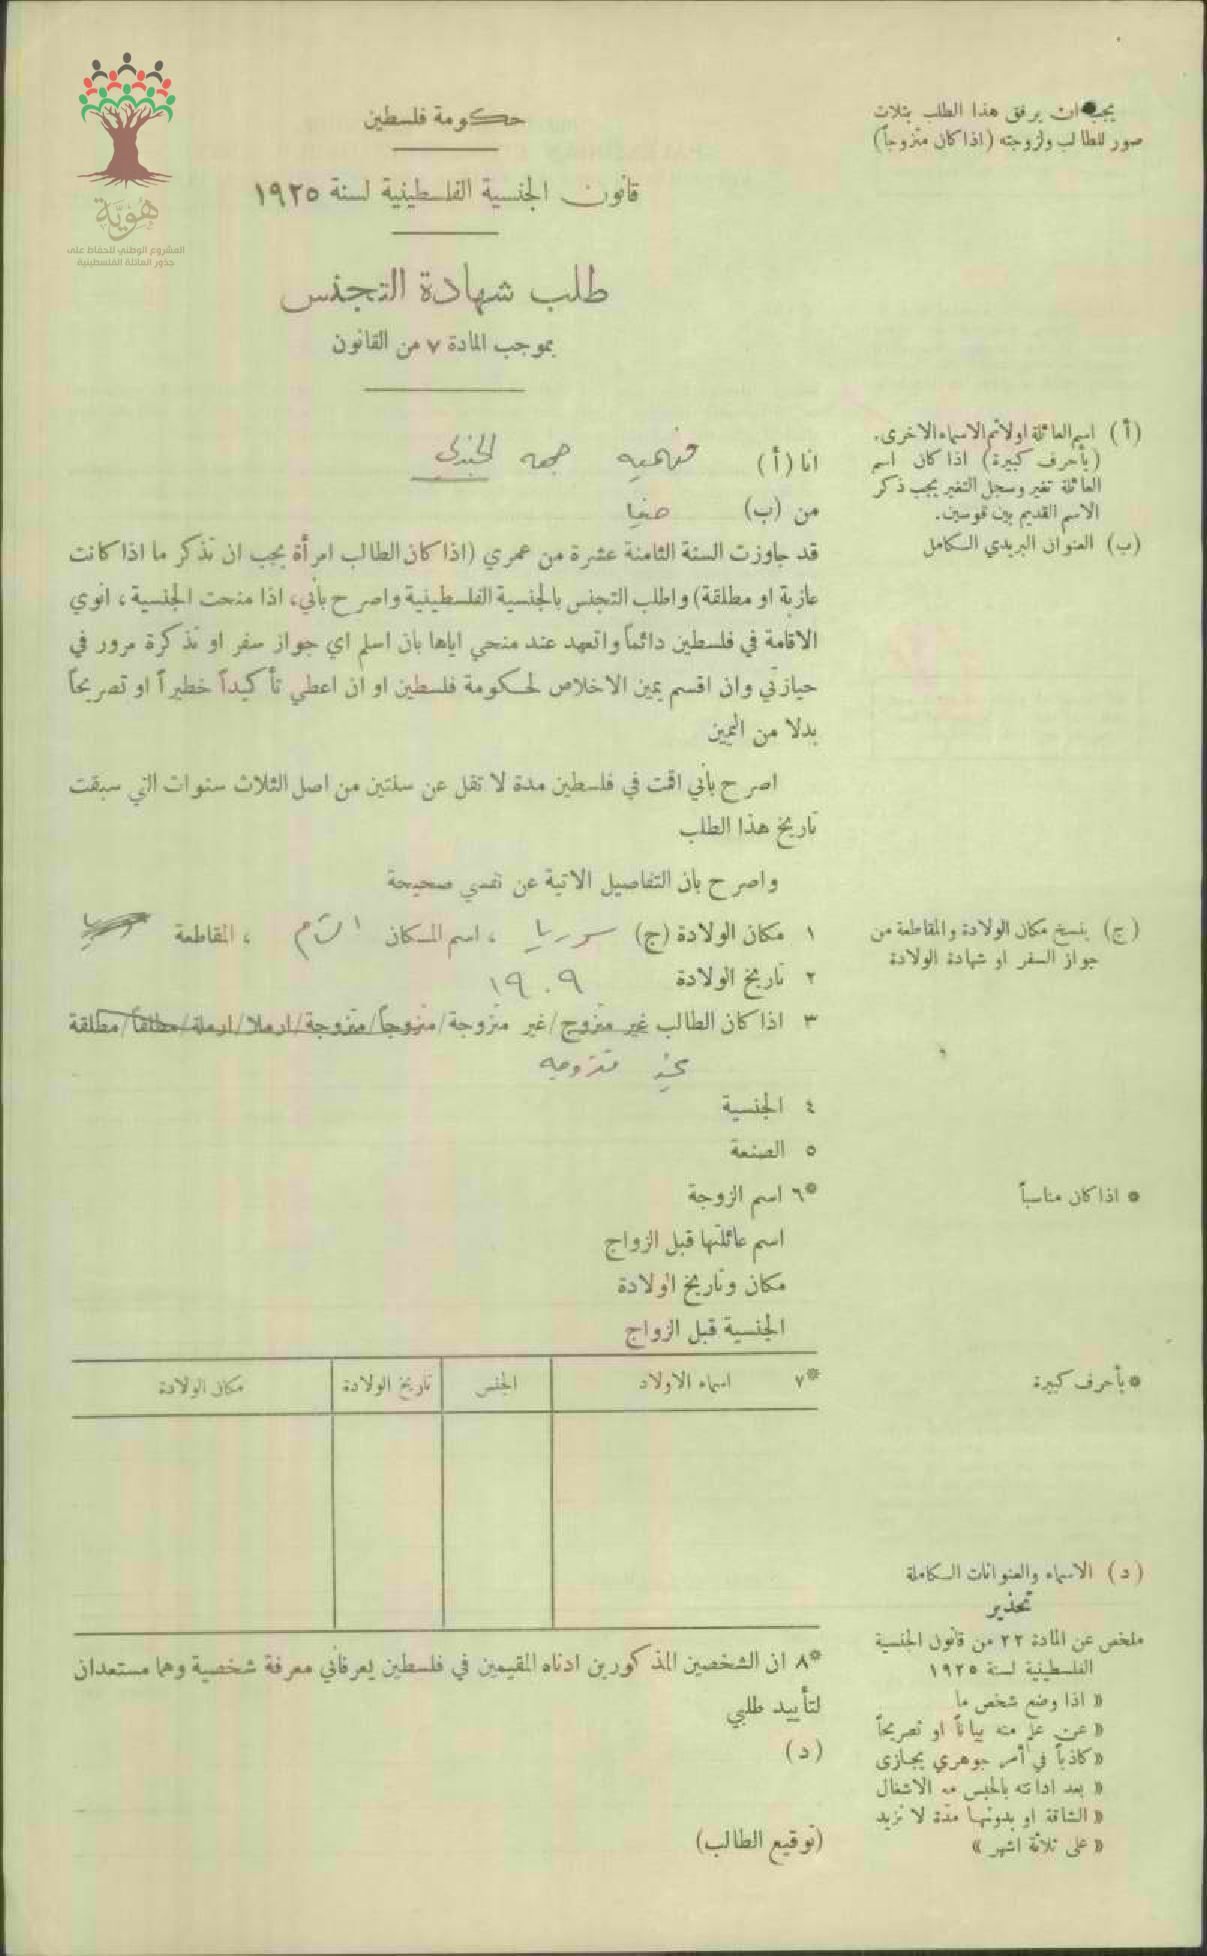 هُوِيَّة
المشروع الوطني للحفاظ على
جذور العائلة الفلسطينية
يجب ان يرفق هذا الطلب بثلاث
صور للطالب ولزوجته (اذا كان متزوجاً)
حكومة فلسطين
قانون الجنسية الفلسطينية لسنة ١٩٢٥
طلب شهادة التجنس
بموجب المادة ٧ من القانون
(أ) اسم العائلة اولا ثم الاسماء الاخرى.
(بأحرف كبيرة) اذا كان اسم
العائلة تغير وسجل التغير يجب ذكر
الاسم القديم بين قوسين.
(ب) العنوان البريدي الكامل
انا (أ) فهميه جمعه الجندلي
من (ب)
قد جاوزت السنة الثامنة عشرة من عمري (اذا كان الطالب امرأة يجب ان تذكر ما اذا كانت
عازبة او مطلقة) واطلب التجنس بالجنسية الفلسطينية واصرح بأني، اذا منحت الجنسية، انوي
الاقامة في فلسطين دائماً واتعهد عند منحي اياها بان اسلم اي جواز سفر او تذكرة مرور في
حيازتي وان اقسم يمين الاخلاص لحكومة فلسطين او ان اعطي تأكيداً خطيراً او تصريحاً
بدلا من اليمين
اصرح بأني اقمت في فلسطين مدة لا تقل عن سنتين من اصل الثلاث سنوات التي سبقت
تاريخ هذا الطلب
واصرح بان التفاصيل الاتية عن نفسي صحيحة
(ج) ينسخ مكان الولادة والمقاطعة من
جواز السفر او شهادة الولادة
١ مكان الولادة (ج) سوريا ، اسم المكان الشام ، المقاطعة
٢ تاريخ الولادة ١٩٠٩
٣ اذا كان الطالب غير متزوج/غير متزوجة/متزوجاً/متزوجة/ارملا/ارملة/مطلقاً/مطلقة
غير متزوجه
٤ الجنسية
٥ الصنعة
* اذا كان مناسباً
*٦ اسم الزوجة
اسم عائلتها قبل الزواج
مكان وتاريخ الولادة
الجنسية قبل الزواج
* بأحرف كبيرة
*٧ اسماء الاولاد الجنس تاريخ الولادة مكان الولادة
(د) الاسماء والعنوانات الكاملة
تحذير
ملخص عن المادة ٢٢ من قانون الجنسية
الفلسطينية لسنة ١٩٢٥
« اذا وضع شخص ما
« عن علم منه بياناً او تصريحاً
« كاذباً في أمر جوهري يجازى
« بعد ادانته بالحبس مع الاشغال
« الشاقة او بدونها مدة لا تزيد
« على ثلاثة اشهر »
*٨ ان الشخصين المذكورين ادناه المقيمين في فلسطين يعرفاني معرفة شخصية وهما مستعدان
لتأييد طلبي
(د)
(توقيع الطالب)